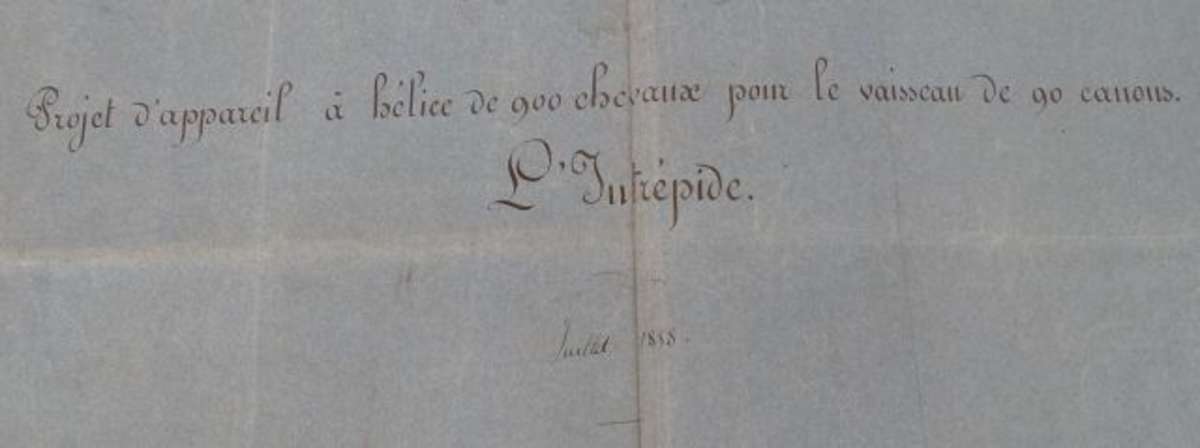 Projet d'appareil à hélice de 900 chevaux pour le vaisseau de 90 canons.
L'Intrépide.
Juillet 1858.